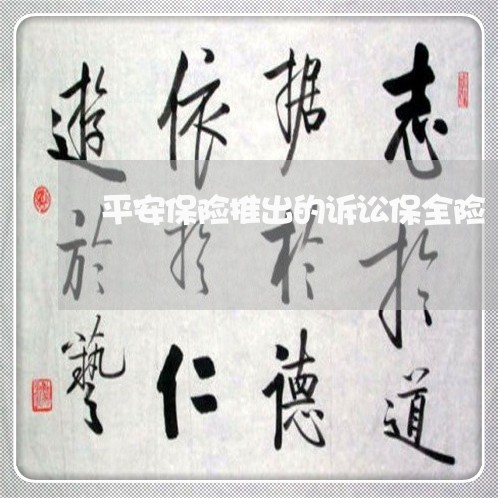 志扵道
据於德
依扵仁
遊於藝
平安保险推出的诉讼保全险